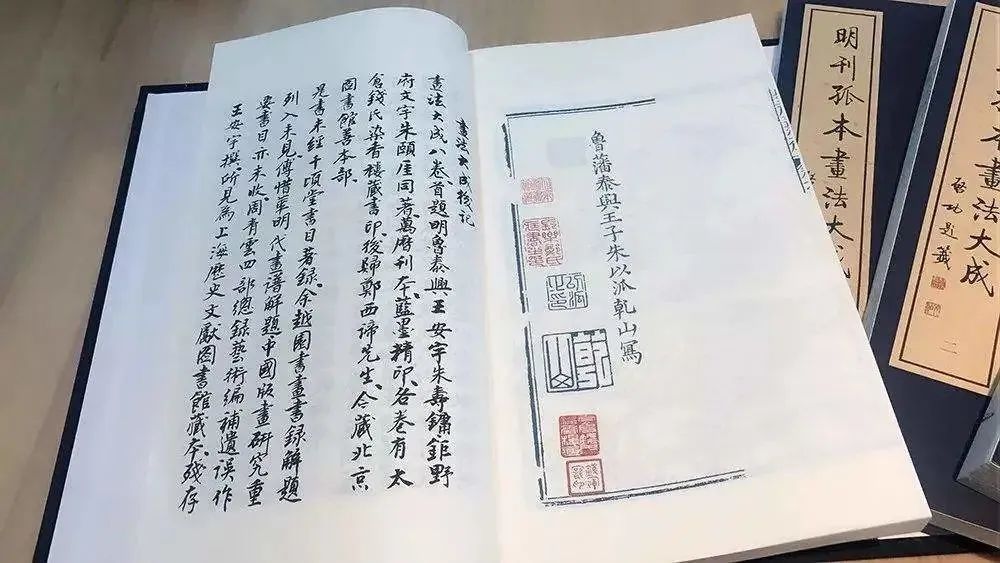 畫法大成
畫法大成八卷首題明魯泰興王安宇朱壽鏞鉅野
府文宇朱頤厓同著萬曆刊本藍墨精印各卷有太
倉錢氏染香樓藏書印後歸鄭西諦先生今藏北京
圖書館善本部
是書未經千頃堂書目著録余越園書畫書録解題
列入未見傅惜華明代畫譜解題中國版畫研究重
要書目亦未收周青雲四部總録藝術編補遺誤作
王安宇撰所見為上海歷史文獻图書館藏本殘存
魯藩泰興王子朱以派乾山寫
明刊孤本畫法大成
本畫法大成
啓功題簽
二